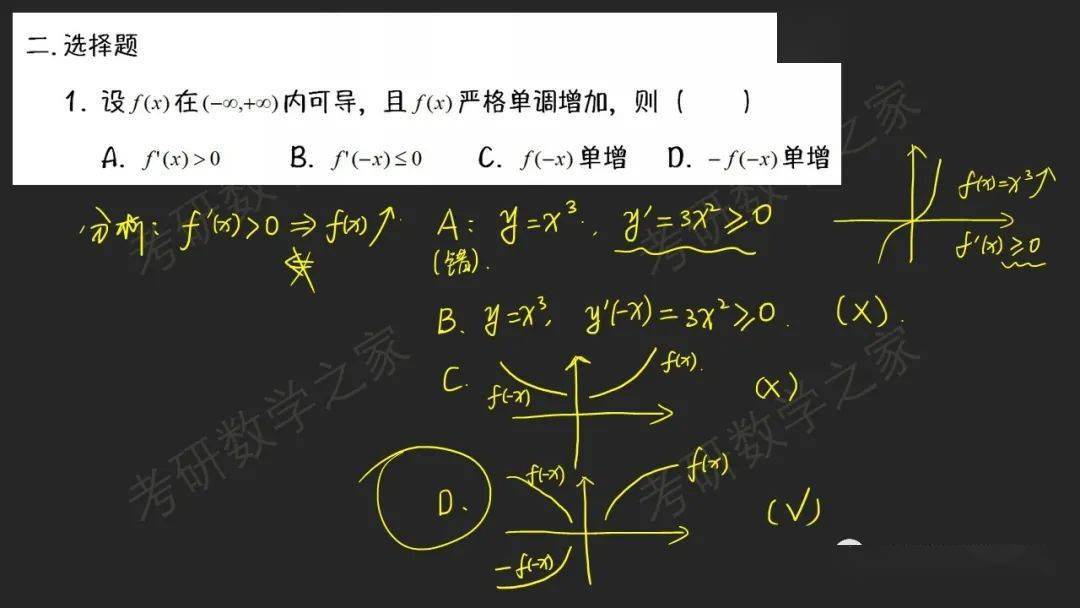 二. 选择题
1. 设 f(x) 在 (-∞,+∞) 内可导，且 f(x) 严格单调增加，则（　　）
A. f'(x)>0　B. f'(-x)≤0　C. f(-x) 单增　D. -f(-x) 单增
分析：f'(x)>0 ⇒ f(x)↗.　A: y=x³, y'=3x²≥0
(错).
f(x)=x³↗
f'(x)≥0
B. y=x³, y'(-x)=3x²≥0. (×).
C. f(-x) f(x). (×)
D. f(-x) f(x) (√)
-f(-x)
考研数学之家
考研数学之家
考研数学之家
考研数学之家